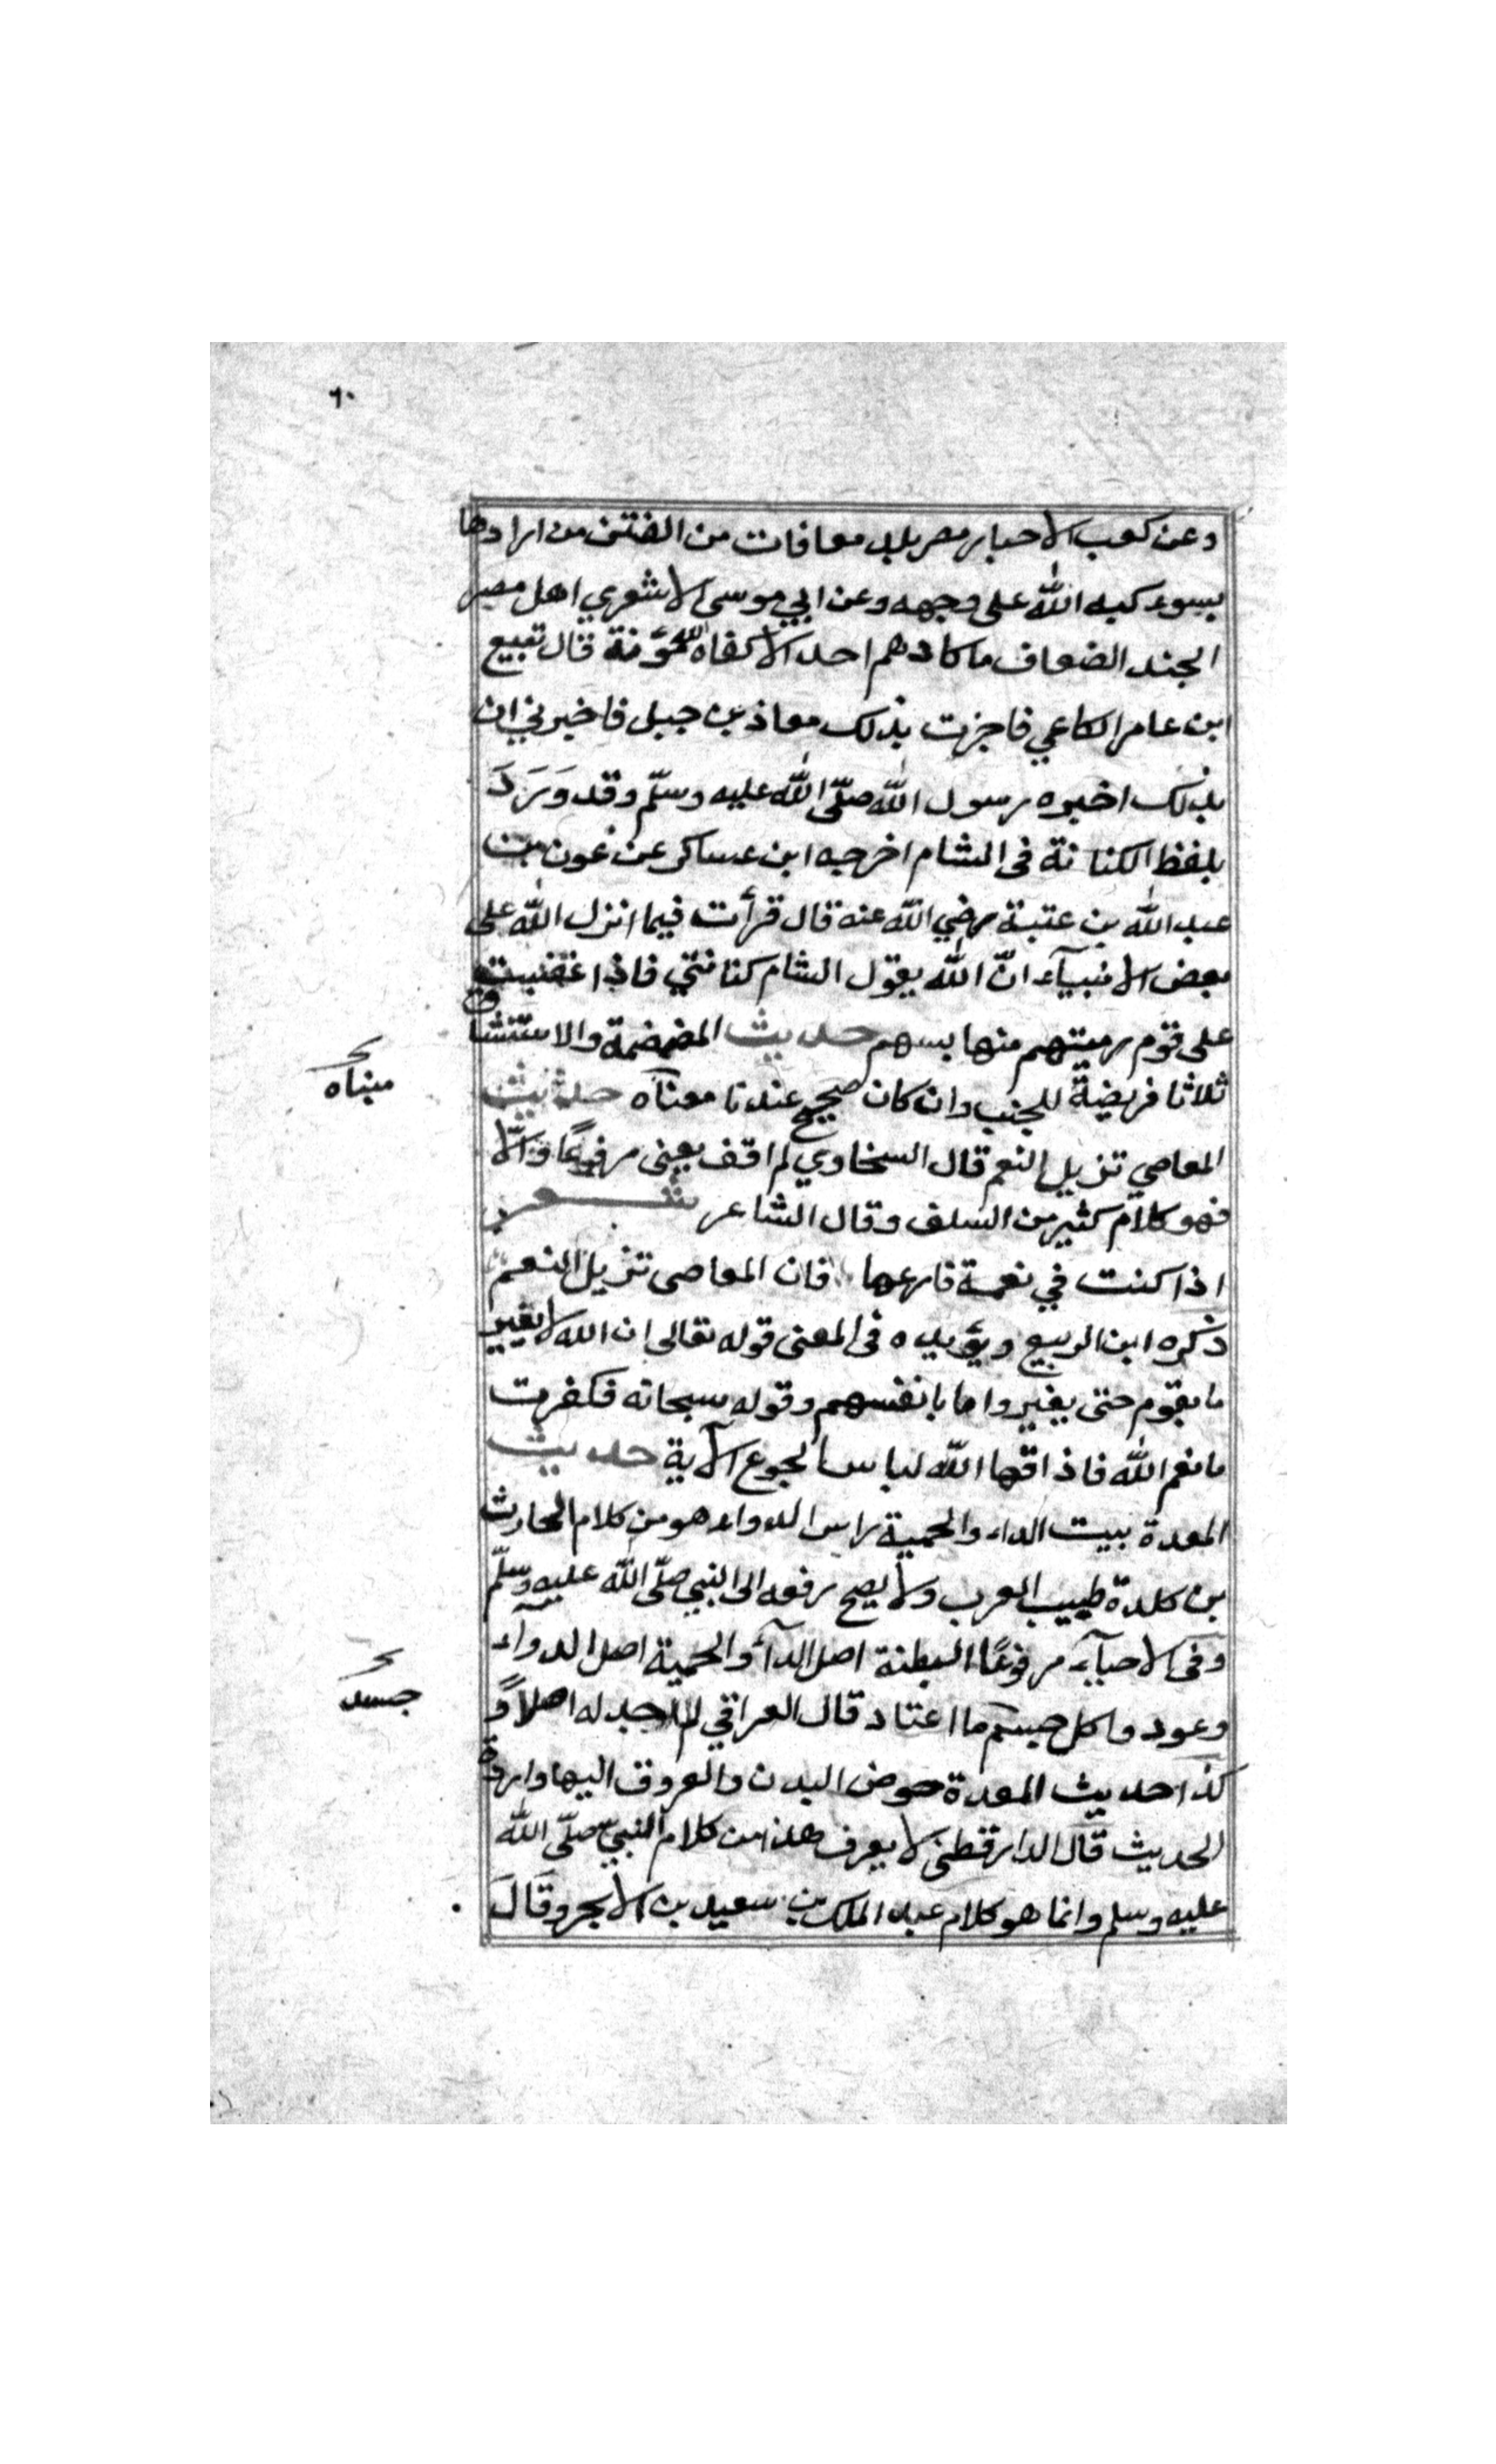 ٦٠
وعن كعب الاحبار مصر بلد معافات من الفتن من ارادها
بسوء كبه الله على وجهه وعن ابي موسى الاشعري اهل مصر
الجند الضعاف ما كادهم احد الا كفاهم الله مؤنة قال تبيع
ابن عامر الكلاعي فاخبرت بذلك معاذ بن جبل فاخبرني ان
بذلك اخبره رسول الله صلّى الله عليه وسلّم وقد وَرَدَ
بلفظ الكنانة فى الشام اخرجه ابن عساكر عن عون بن
عبد الله بن عتبة رضي الله عنه قال قرأت فيما انزل الله على
بعض الانبيآء انّ الله يقول الشام كنانتي فاذا غضبت
على قوم رميتهم منها بسهم حديث المضمضة والاستنشاق
ثلاثا فريضة للجنب وان كان صحيح عندنا معناه حديث
مبناه
المعاصي تزيل النعم قال السخاوي لم اقف يعنى مرفوعًا والّا
فهو كلام كثير من السلف وقال الشاعر شعر
اذا كنت في نعمة فارعها فان المعاصى تزيل النعم
ذكره ابن الربيع ويؤيده فى المعنى قوله تعالى ان الله لا يغير
ما بقوم حتى يغيروا ما بانفسهم وقوله سبحانه فكفرت
بانعم الله فاذاقها الله لباس الجوع الآية حديث
المعدة بيت الداء والحمية راس الدواء هو من كلام الحارث
بن كلدة طبيب العرب ولا يصح رفعه الى النبي صلّى الله عليه وسلّم
وفى الاحيآء مرفوعًا البطنة اصل الدآء والحمية اصل الدوآء
وعودوا كل جسم ما اعتاد قال العراقي لم اجد له اصلاً و
جسد
كذا حديث المعدة حوض البدن والعروق اليها واردة
الحديث قال الدارقطنى لا يعرف هذا من كلام النبي صلّى الله
عليه وسلم وانما هو كلام عبد الملك بن سعيد بن الابجر وقَالَ